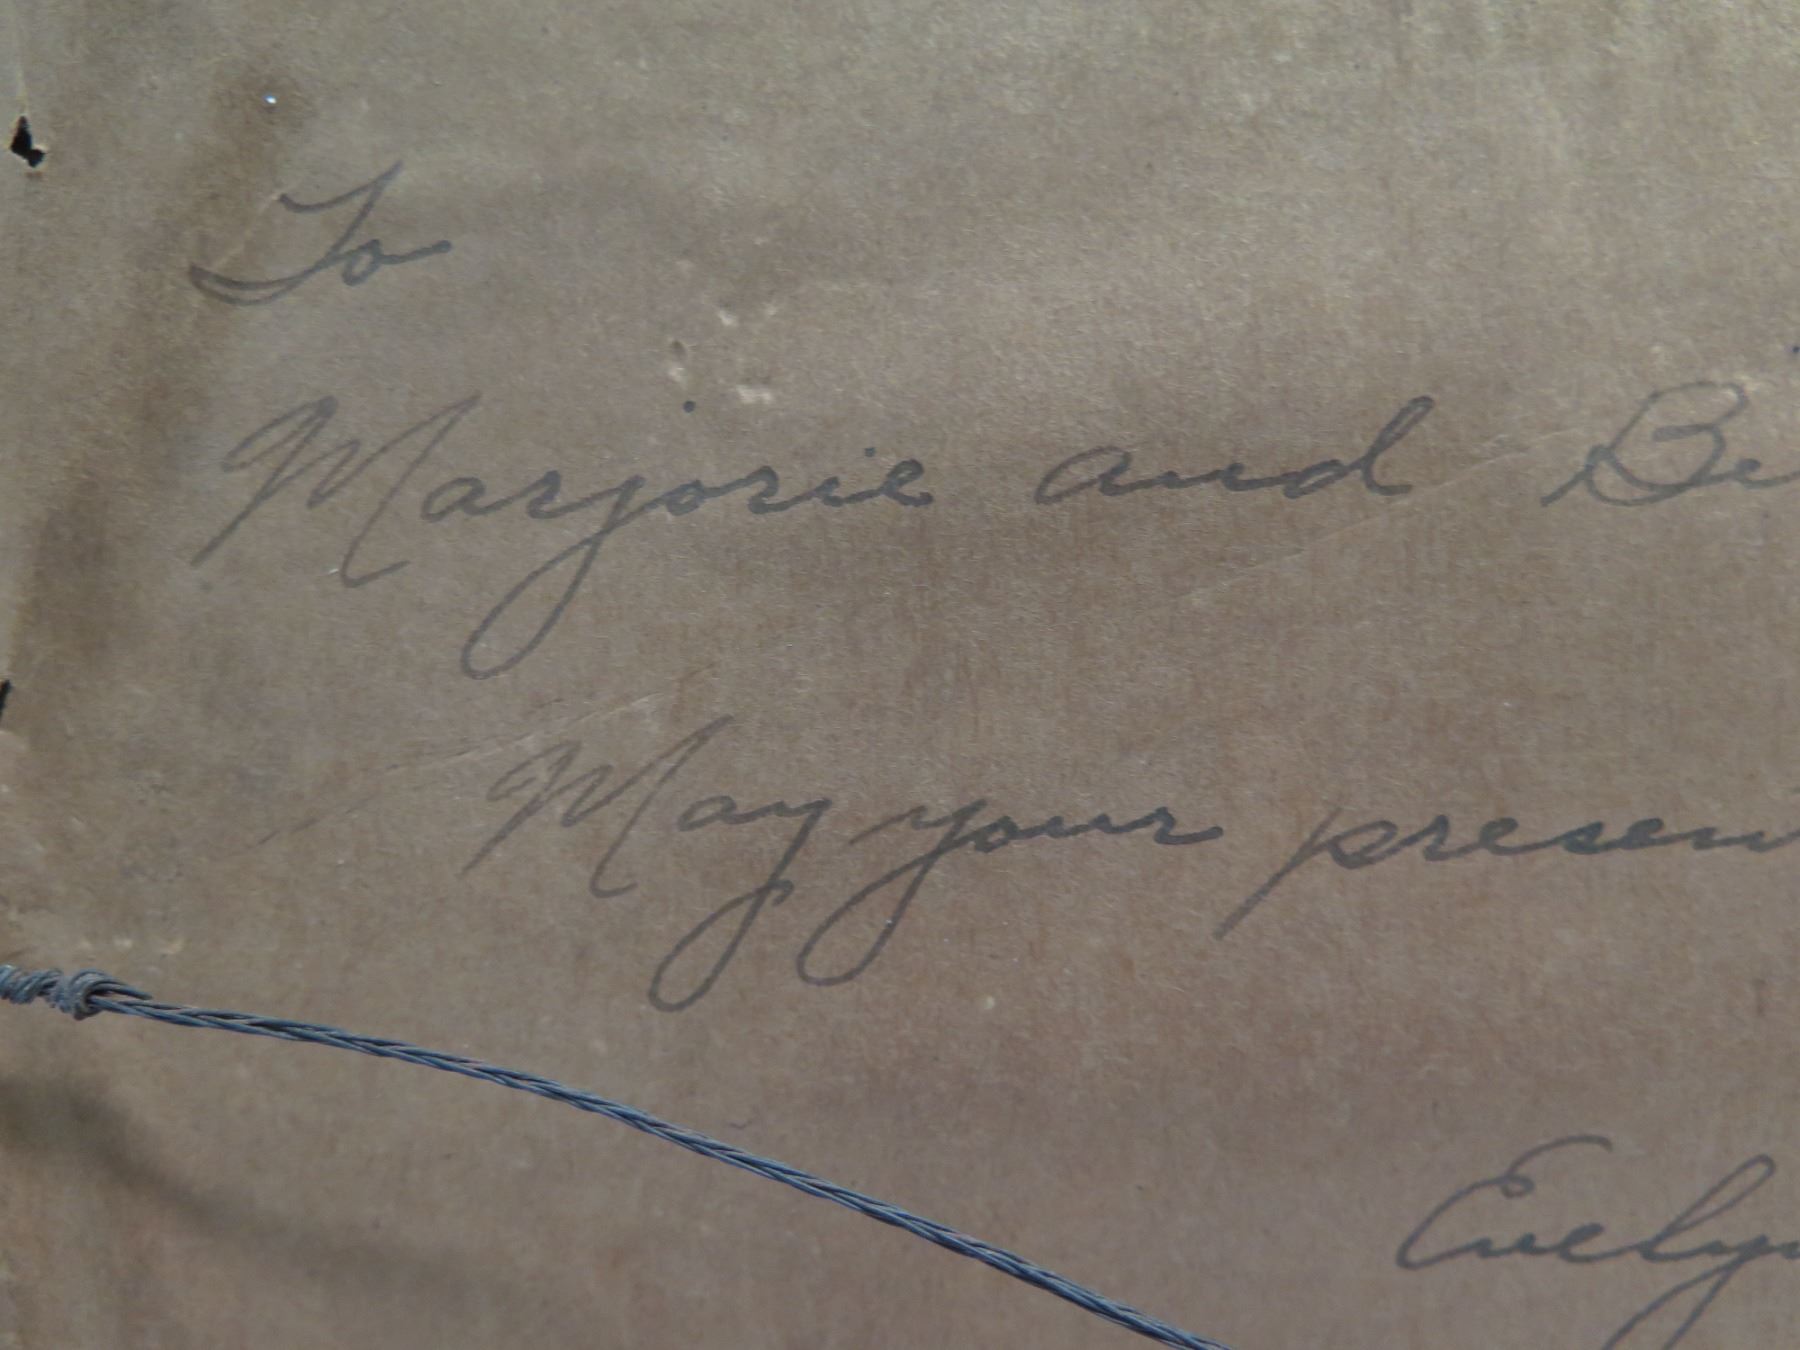 To
Marjorie and
May your presen
Evely